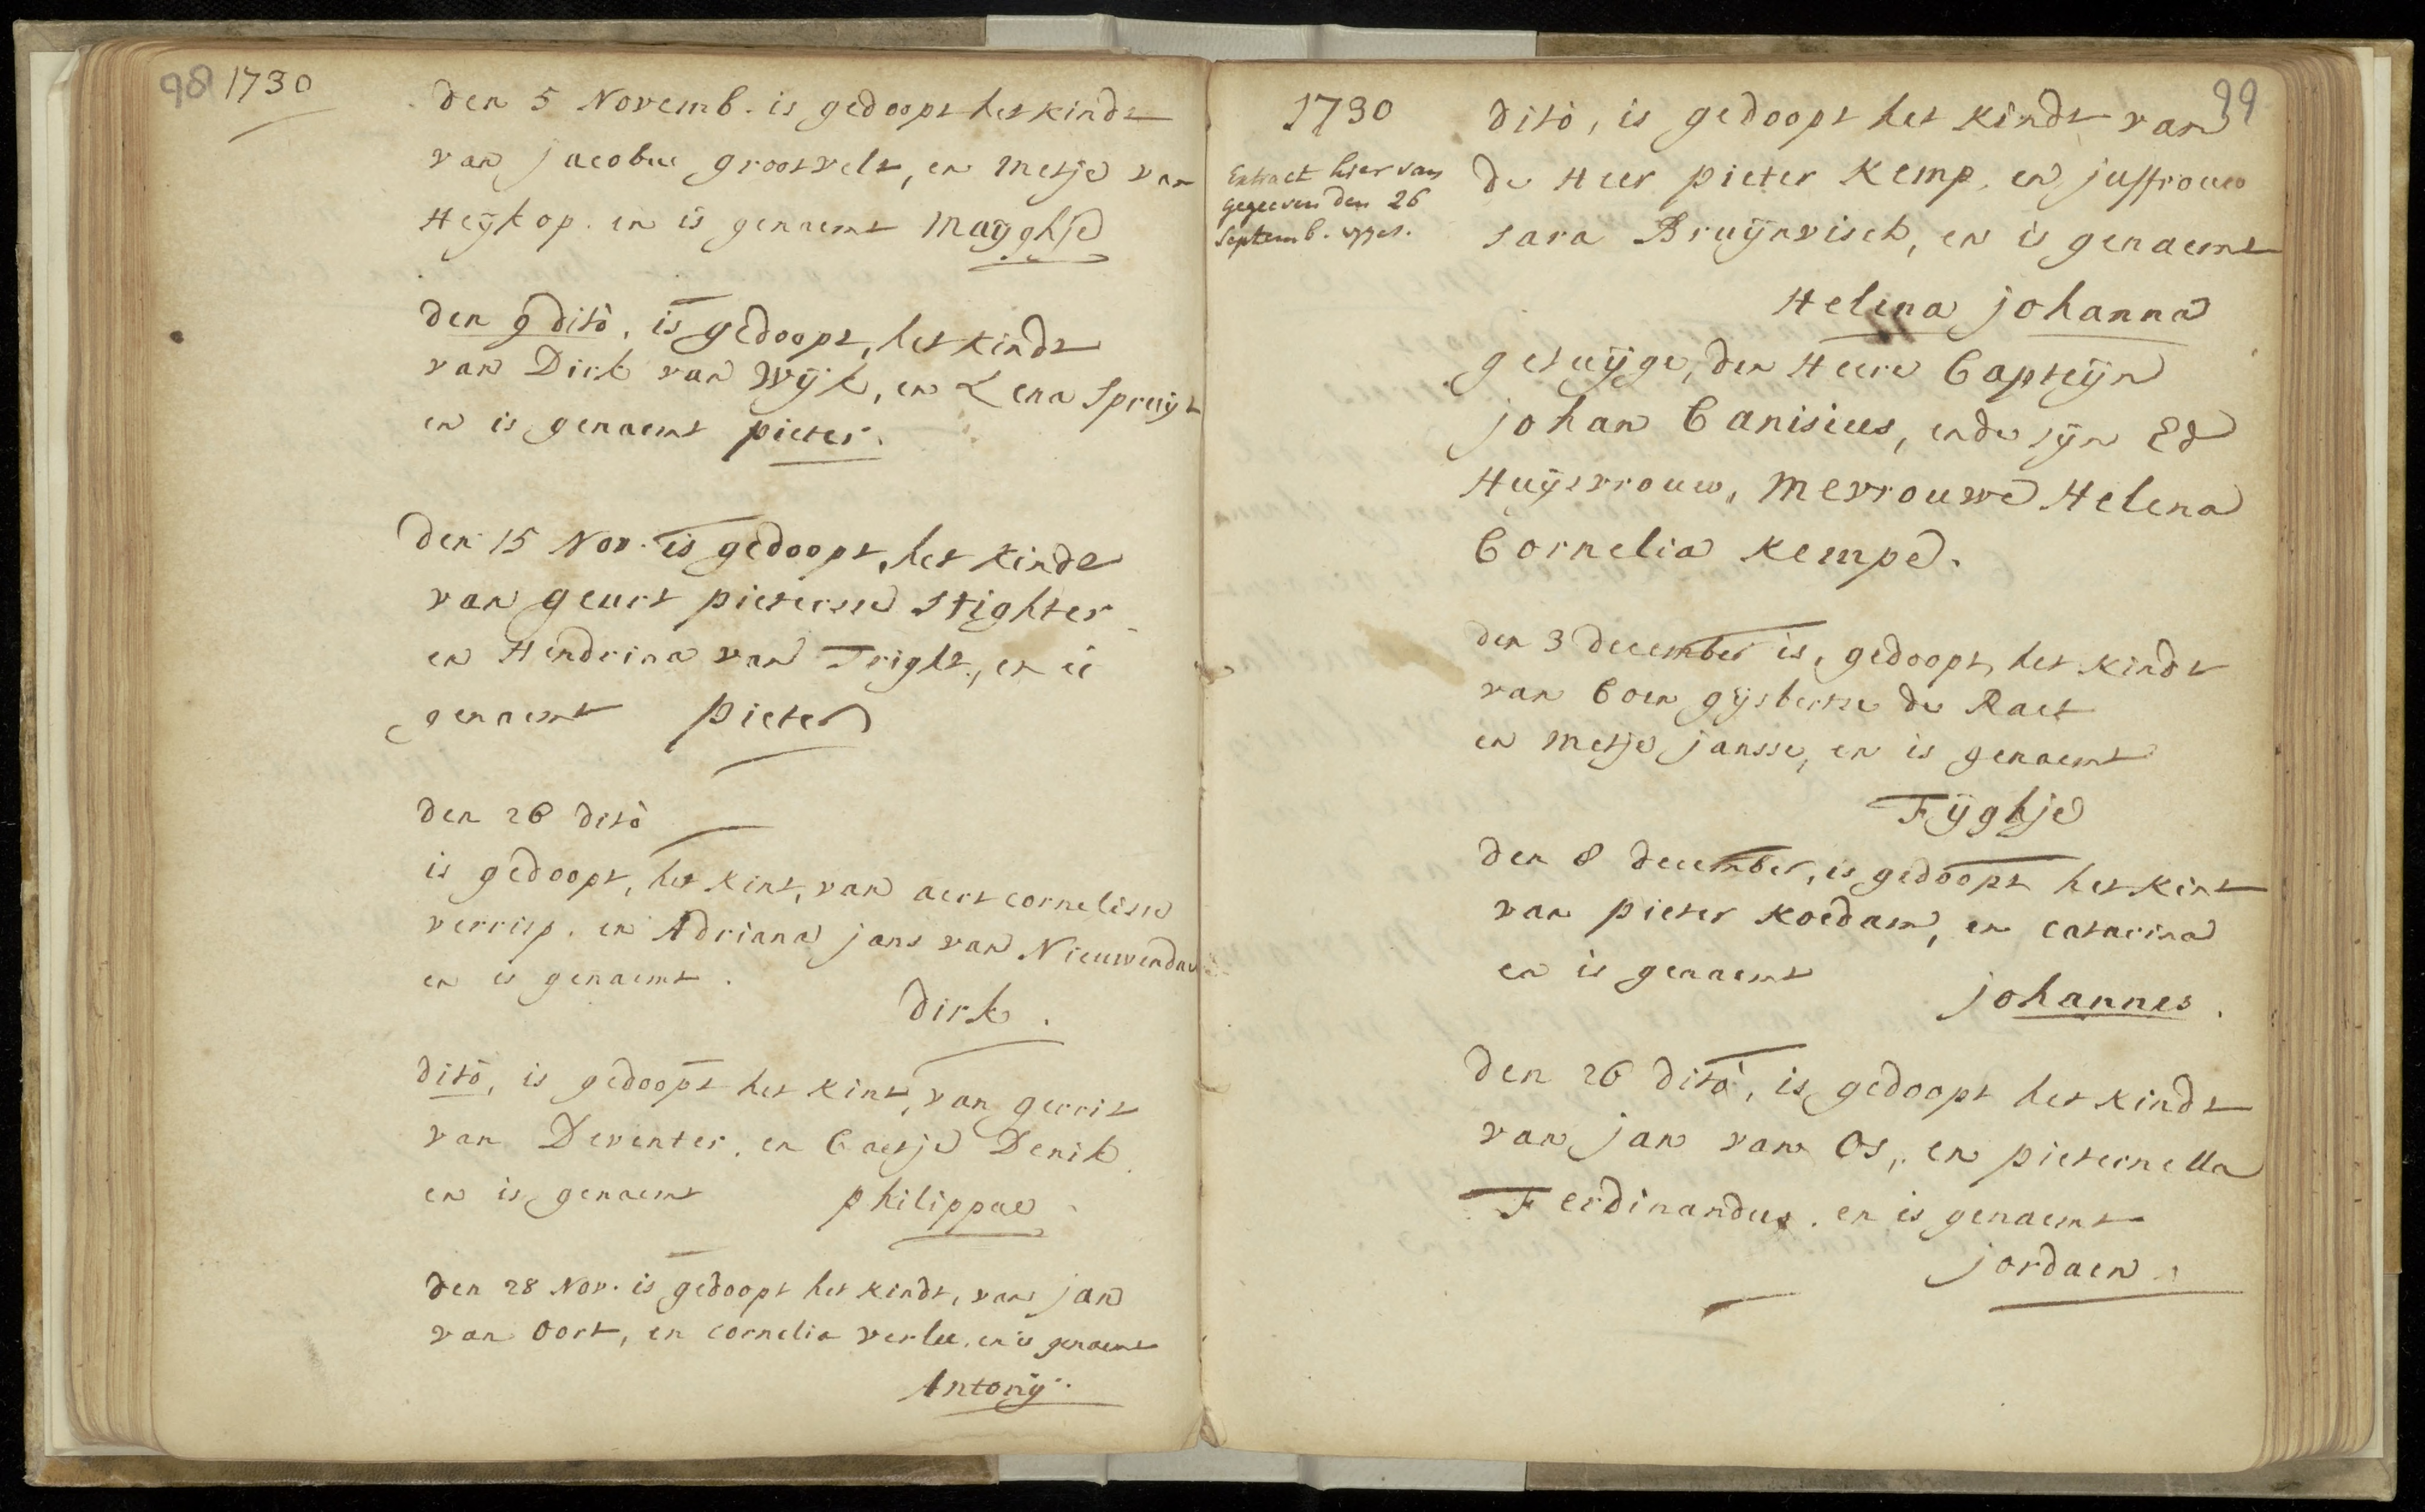 98 1730
den 5 Novemb. is gedoopt het kindt
van jacobus grootvelt, en metje van
Heijkop. en is genaemt maijghje
den 9 dito, is gedoopt, het kindt
van Dirk van Wijk, en Lena Spruijt
en is genaemt pieter.
den 15 Nov. is gedoopt, het kindt
van geurt pieterse Stighter
en Hendrina van Tright, en is
genaemt pieter
den 26 dito
is gedoopt, het kint, van aert cornelisse
verrisp. en Adriana jans van Nieuwendael
en is genaemt.
dirk.
dito, is gedoopt het kint, van gerrit
van Deventer, en Caetje Denik.
en is genaemt philippae
den 28 Nov. is gedoopt het kindt, van jan
van Oort, en cornelia verlee. en is genaemt
Antonij.
99
1730
Extract hier van
gegeeven den 26
Septemb.
dito, is gedoopt het kindt van
de Heer pieter Kemp, en juffrouw
sara Bruijnvisch, en is genaemt
Helena johanna
getuijge, den Heere Capteijn
johan Canisius, ende sijn Ed
Huijsvrouw, mevrouwe Helena
Cornelia kempe.
den 3 december is, gedoopt, het kindt
van Coen gijsbertse de Raet
en metje jansse, en is genaemt
Fijghje
den 8 december, is gedoopt het kint
van pieter koedam, en catarina
en is genaemt
johannes.
den 26 dito, is gedoopt het kindt
van jan van Os, en pieternella
Ferdinandus. en is genaemt
jordaen.